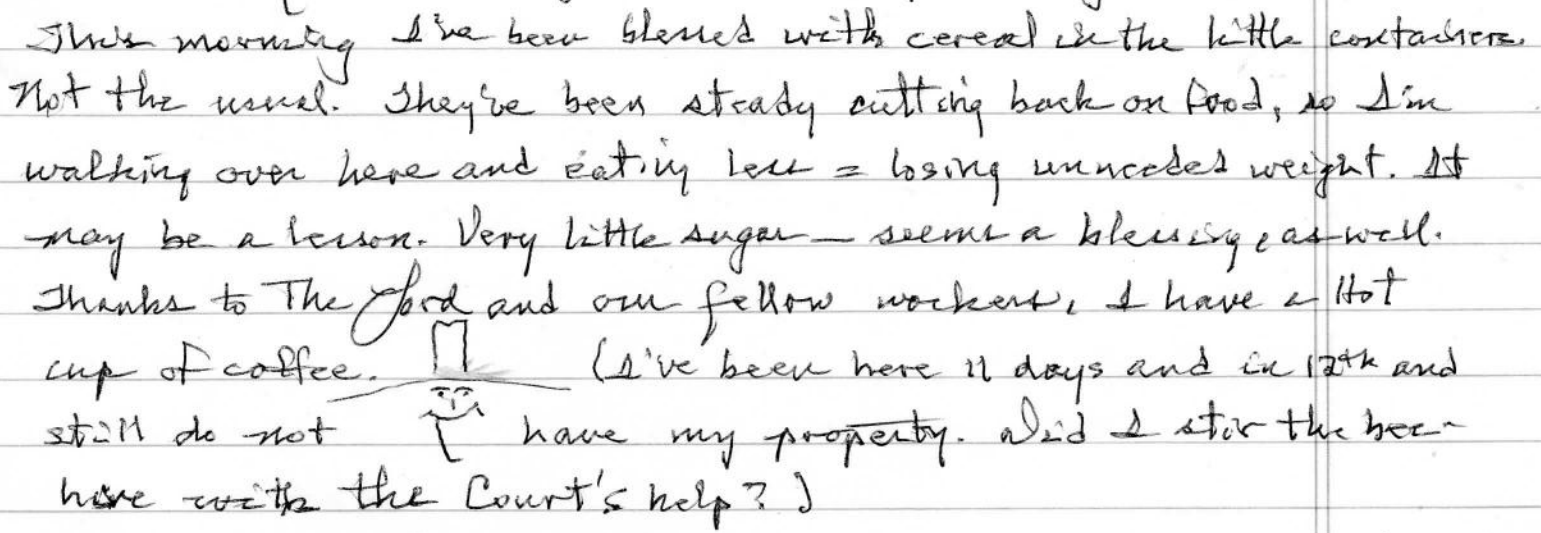 This morning I've been blessed with cereal in the little containers.
Not the usual. They've been steady cutting back on food, so I'm
walking over here and eating less = losing unneeded weight. It
may be a lesson. Very little sugar — seems a blessing, as well.
Thanks to The Lord and our fellow workers, I have a Hot
cup of coffee. (I've been here 11 days and in 12th and
still do not have my property. Did I stir the bee-
hive with the Court's help?)